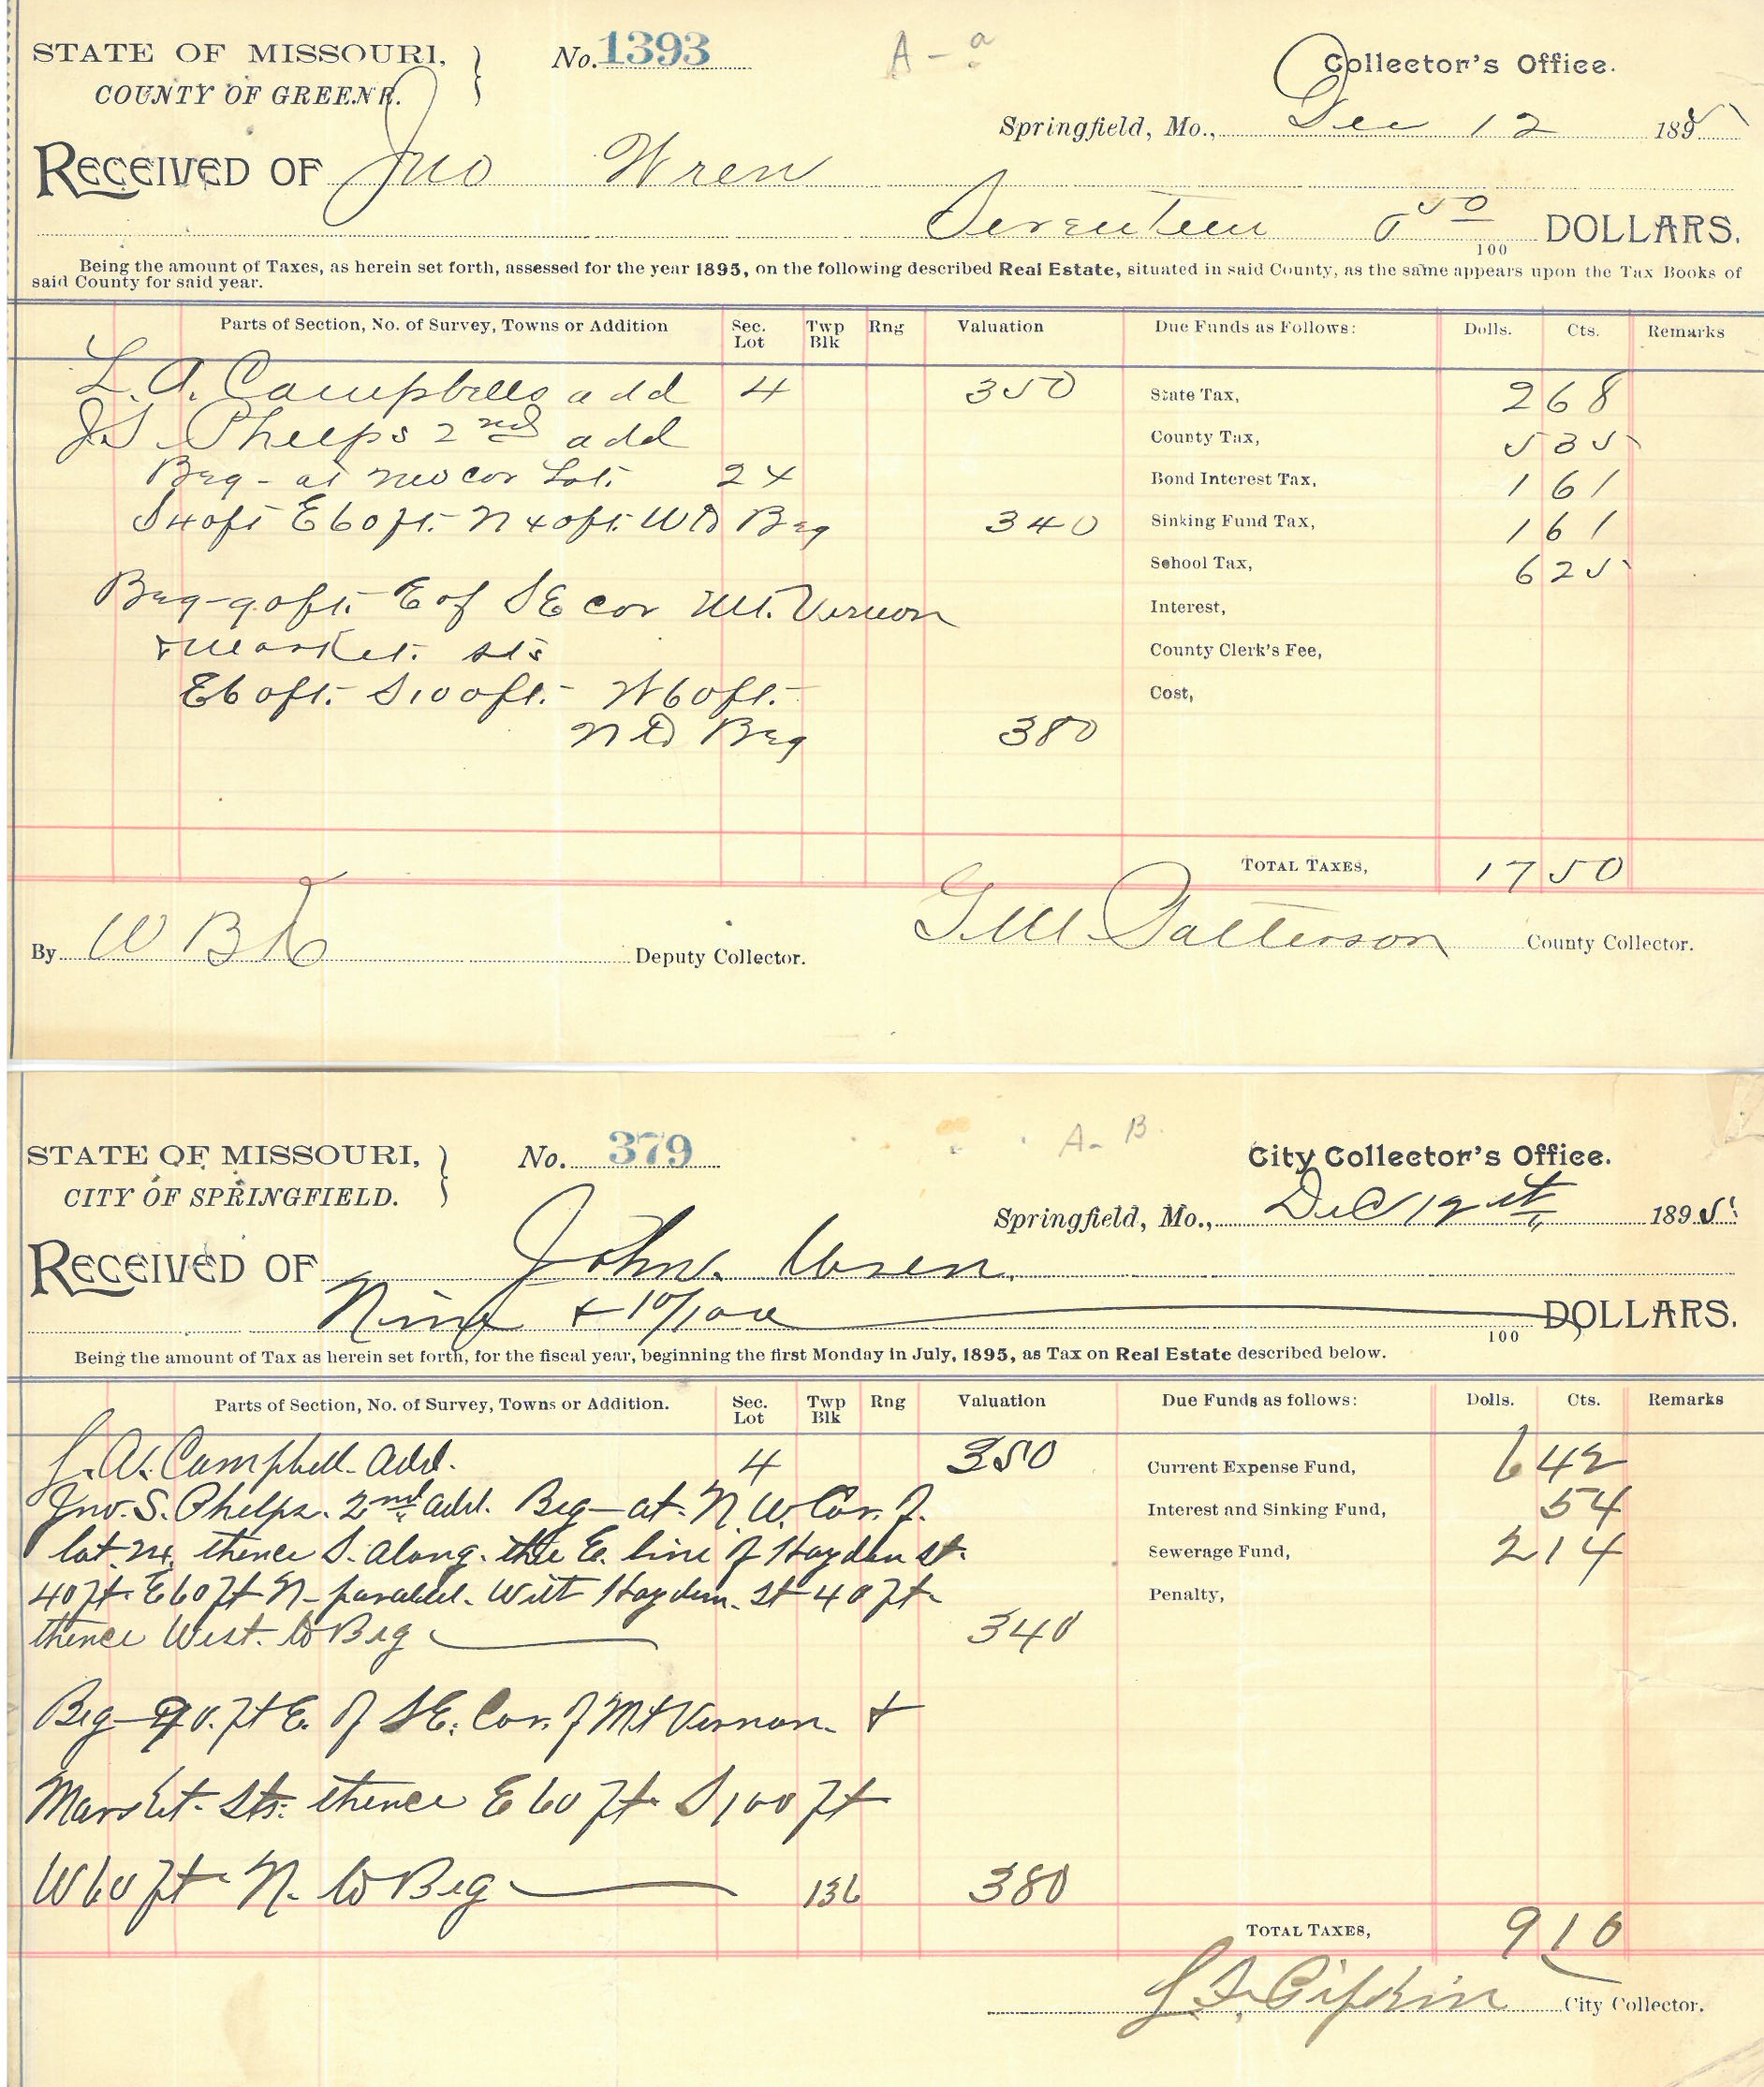 STATE OF MISSOURI, } No. 1393 A - a Collector's Office.
COUNTY OF GREENE.
Springfield, Mo., Dec 12 1895
RECEIVED OF Jno Wren
Seventeen & 50/100 DOLLARS.
Being the amount of Taxes, as herein set forth, assessed for the year 1895, on the following described Real Estate, situated in said County, as the same appears upon the Tax Books of
said County for said year.
Parts of Section, No. of Survey, Towns or Addition Sec. Lot Twp Blk Rng Valuation Due Funds as Follows: Dolls. Cts. Remarks
L. A. Campbells add 4 350 State Tax, 2 68
J S Phelps 2nd add County Tax, 5 35
Beg - at nw cor Lot 24 Bond Interest Tax, 1 61
S 40 ft E 60 ft. N 40 ft. W to Beg 340 Sinking Fund Tax, 1 61
School Tax, 6 25
Beg - 90 ft. E of S E cor Mt. Vernon Interest,
& Market sts County Clerk's Fee,
E 60 ft. S 100 ft. W 60 ft. Cost,
N to Beg 380
TOTAL TAXES, 17 50
By W B Deputy Collector. G. M. Patterson County Collector.
STATE OF MISSOURI, } No. 379 A - B City Collector's Office.
CITY OF SPRINGFIELD.
Springfield, Mo., Dec 12th 1895
RECEIVED OF John Wren.
Nine & 10/100 100 DOLLARS.
Being the amount of Tax as herein set forth, for the fiscal year, beginning the first Monday in July, 1895, as Tax on Real Estate described below.
Parts of Section, No. of Survey, Towns or Addition. Sec. Lot Twp Blk Rng Valuation Due Funds as follows: Dolls. Cts. Remarks
L. A. Campbell Add. 4 350 Current Expense Fund, 6 42
Jno. S. Phelps. 2nd add. Beg - at N. W. Cor. of Interest and Sinking Fund, 54
lot 24 thence S. along the E. line of Hayden st. Sewerage Fund, 2 14
40 ft. E 60 ft N - parallel with Hayden St 40 ft. Penalty,
thence West to Beg 340
Beg - 90. ft E. of S E. Cor. of Mt Vernon &
Market Sts. thence E 60 ft S 100 ft
W 60 ft N. to Beg 136 380
TOTAL TAXES, 9 10
City Collector.